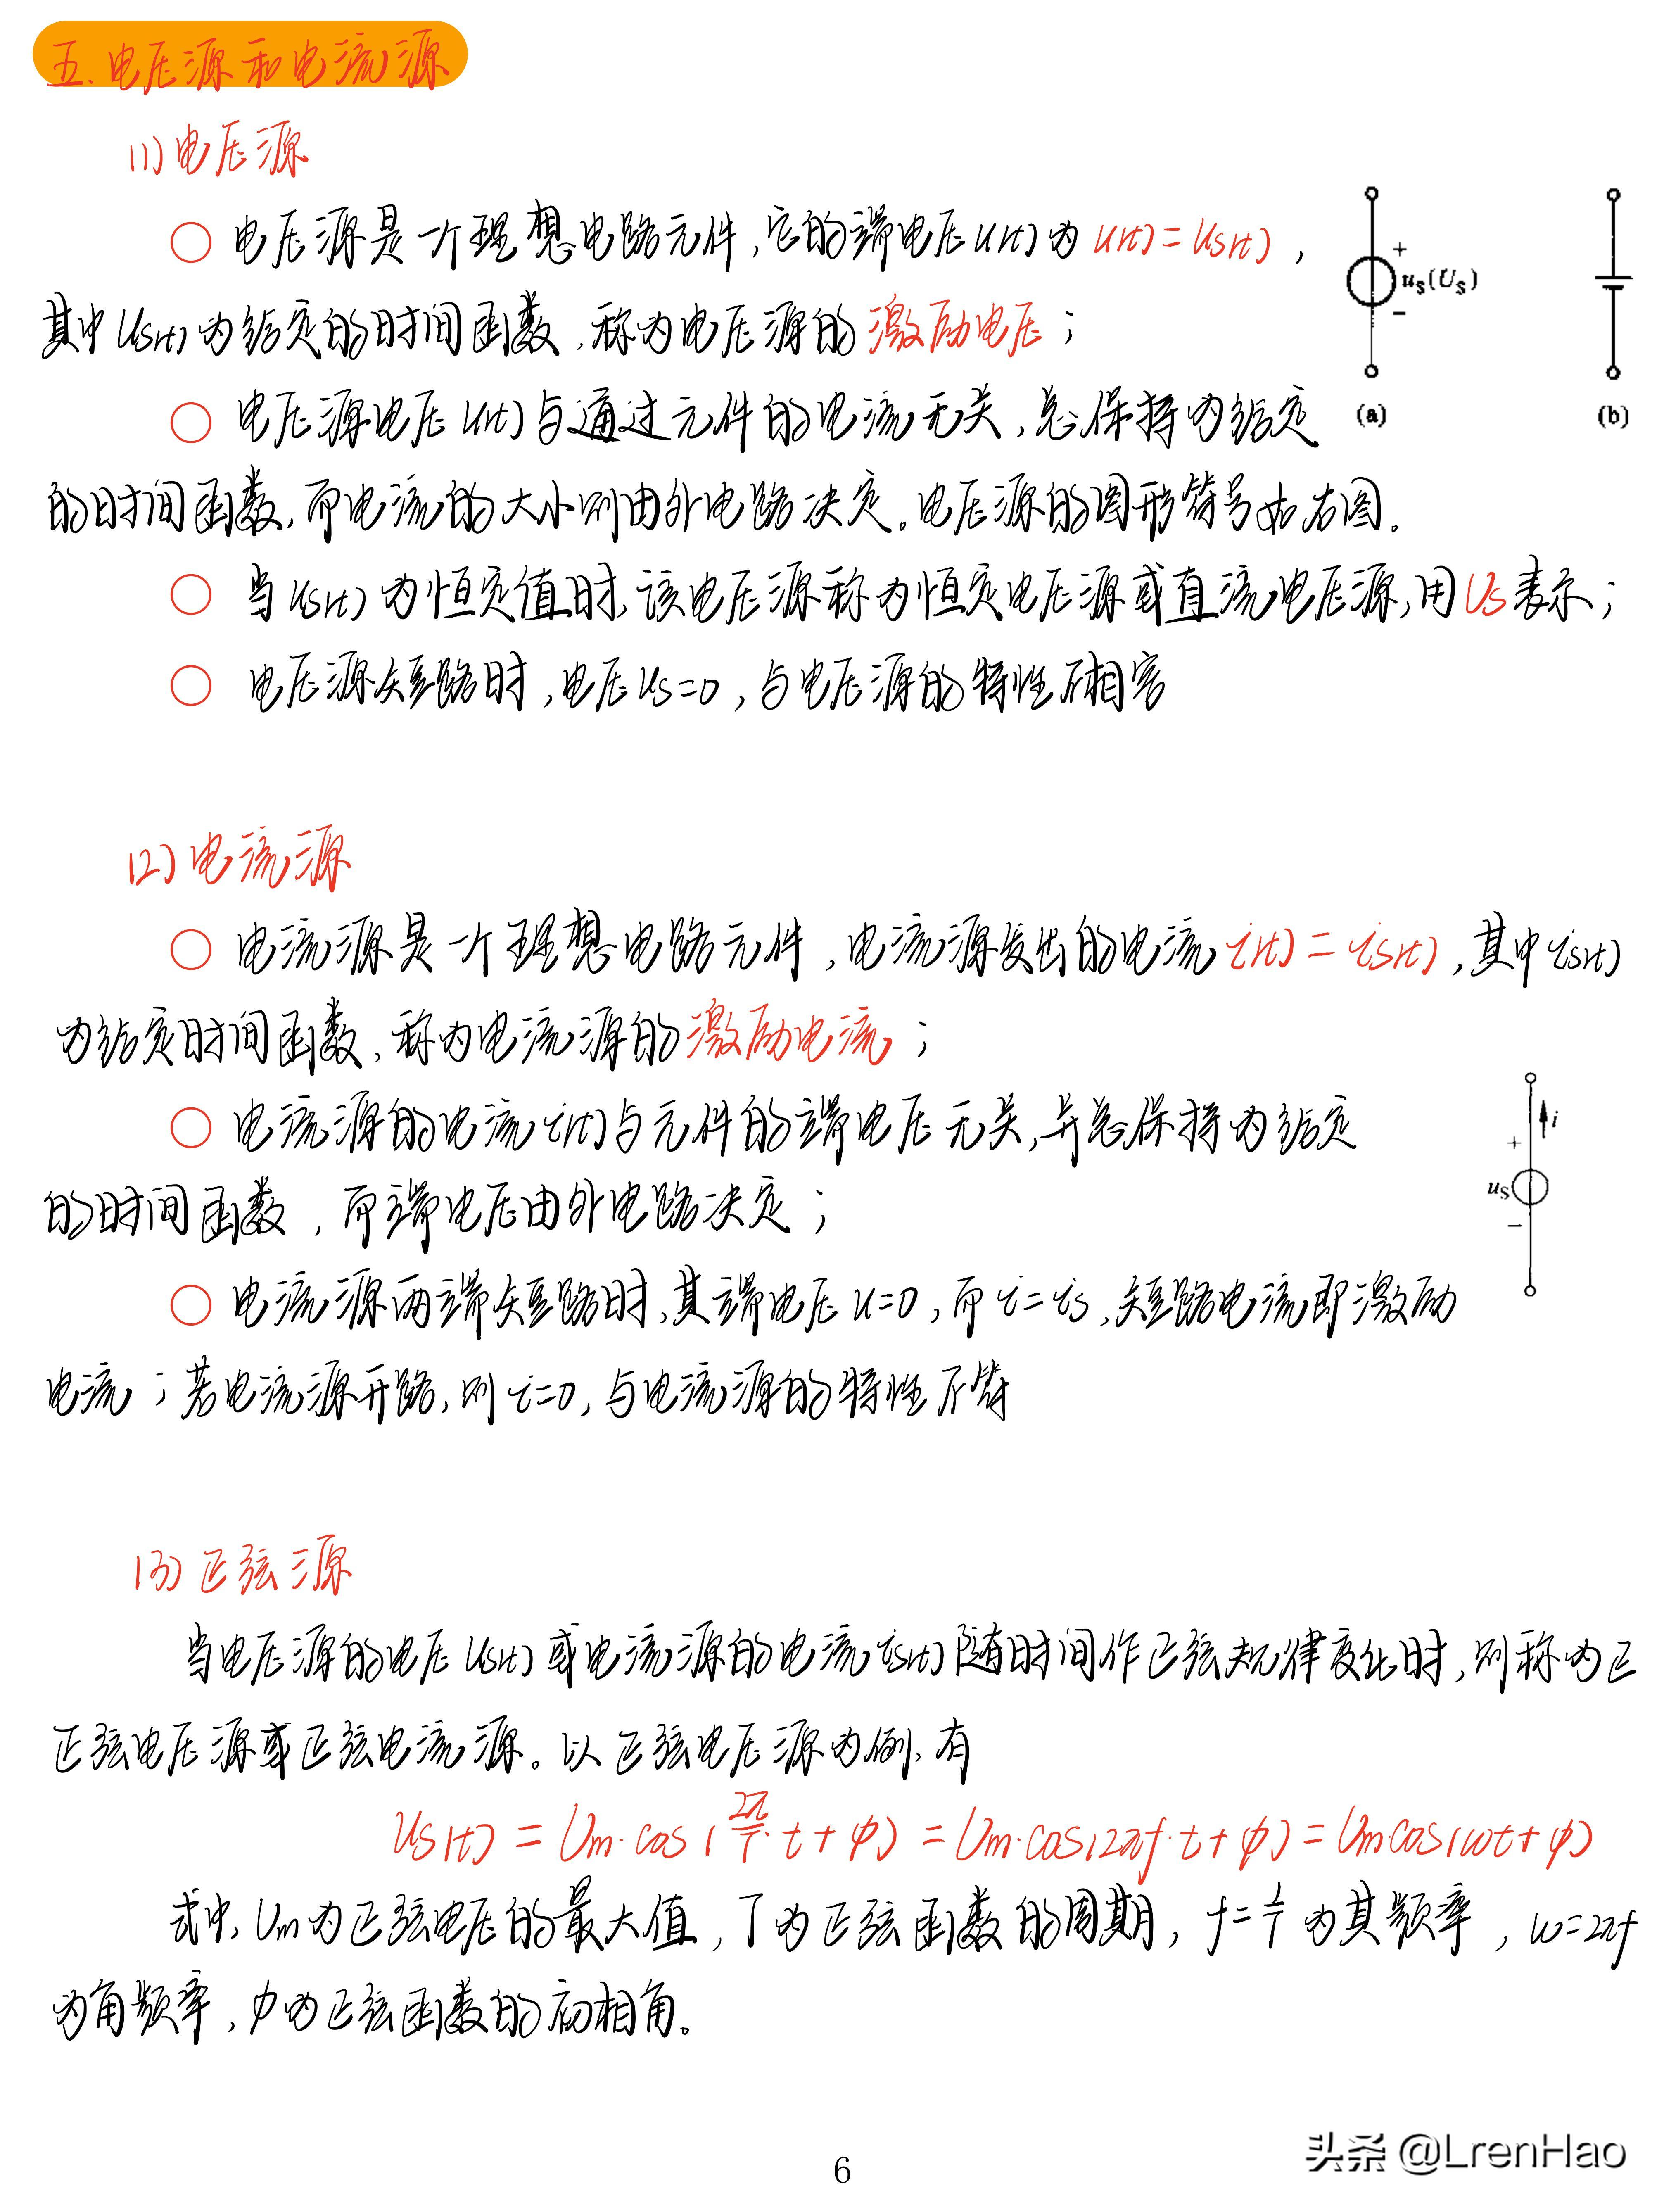 五.电压源和电流源
(1)电压源
○ 电压源是一个理想电路元件,它的端电压u(t)为u(t)=us(t),
其中us(t)为给定的时间函数,称为电压源的激励电压;
+
us(Us)
−
(a)
(b)
○ 电压源电压u(t)与通过元件的电流无关,总保持为给定
的时间函数,而电流的大小则由外电路决定。电压源的图形符号如右图.
○ 当us(t)为恒定值时,该电压源称为恒定电压源或直流电压源,用Us表示;
○ 电压源短路时,电压us=0,与电压源的特性不相容
(2)电流源
○ 电流源是一个理想电路元件,电流源发出的电流i(t)=is(t),其中is(t)
为给定时间函数,称为电流源的激励电流;
○ 电流源的电流i(t)与元件的端电压无关,并总保持为给定
的时间函数,而端电压由外电路决定;
i
+
us
−
○ 电流源两端短路时,其端电压u=0,而i=is,短路电流即激励
电流;若电流源开路,则i=0,与电流源的特性不符
(3)正弦源
当电压源的电压us(t)或电流源的电流is(t)随时间作正弦规律变化时,则称为正
正弦电压源或正弦电流源。以正弦电压源为例,有
us(t)=Um·cos(2π/T·t+φ)=Um·cos(2πf·t+φ)=Umcos(ωt+φ)
式中,Um为正弦电压的最大值,T为正弦函数的周期,f=1/T为其频率,ω=2πf
为角频率,φ为正弦函数的初相角。
6
头条 @LrenHao